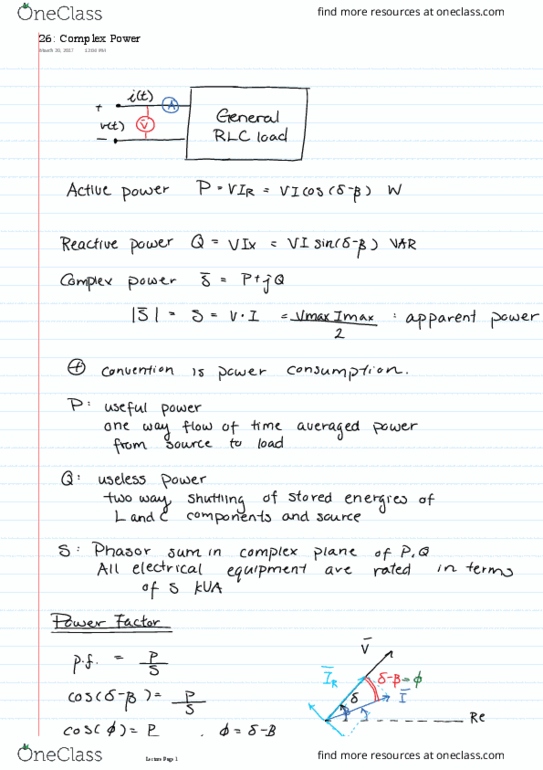 OneClass
find more resources at oneclass.com
26: Complex Power
March 20, 2017
i(t)
+
A
v(t)
V
−
General
RLC load
Active power P = VI_R = VI cos(δ-β) W
Reactive power Q = VI_X = VI sin(δ-β) VAR
Complex power S̄ = P+jQ
|S̄| = S = V·I = Vmax Imax / 2 : apparent power
⊕ convention is power consumption.
P: useful power
one way flow of time averaged power
from source to load
Q: useless power
two way shuttling of stored energies of
L and C components and source
S: Phasor sum in complex plane of P,Q
All electrical equipment are rated in terms
of S kVA
Power Factor
p.f. = P/S
cos(δ-β) = P/S
cos(ϕ) = P . ϕ = δ-β
V̄
Ī_R
δ-β=ϕ
Ī
δ
Re
Lecture Page 1
OneClass
find more resources at oneclass.com